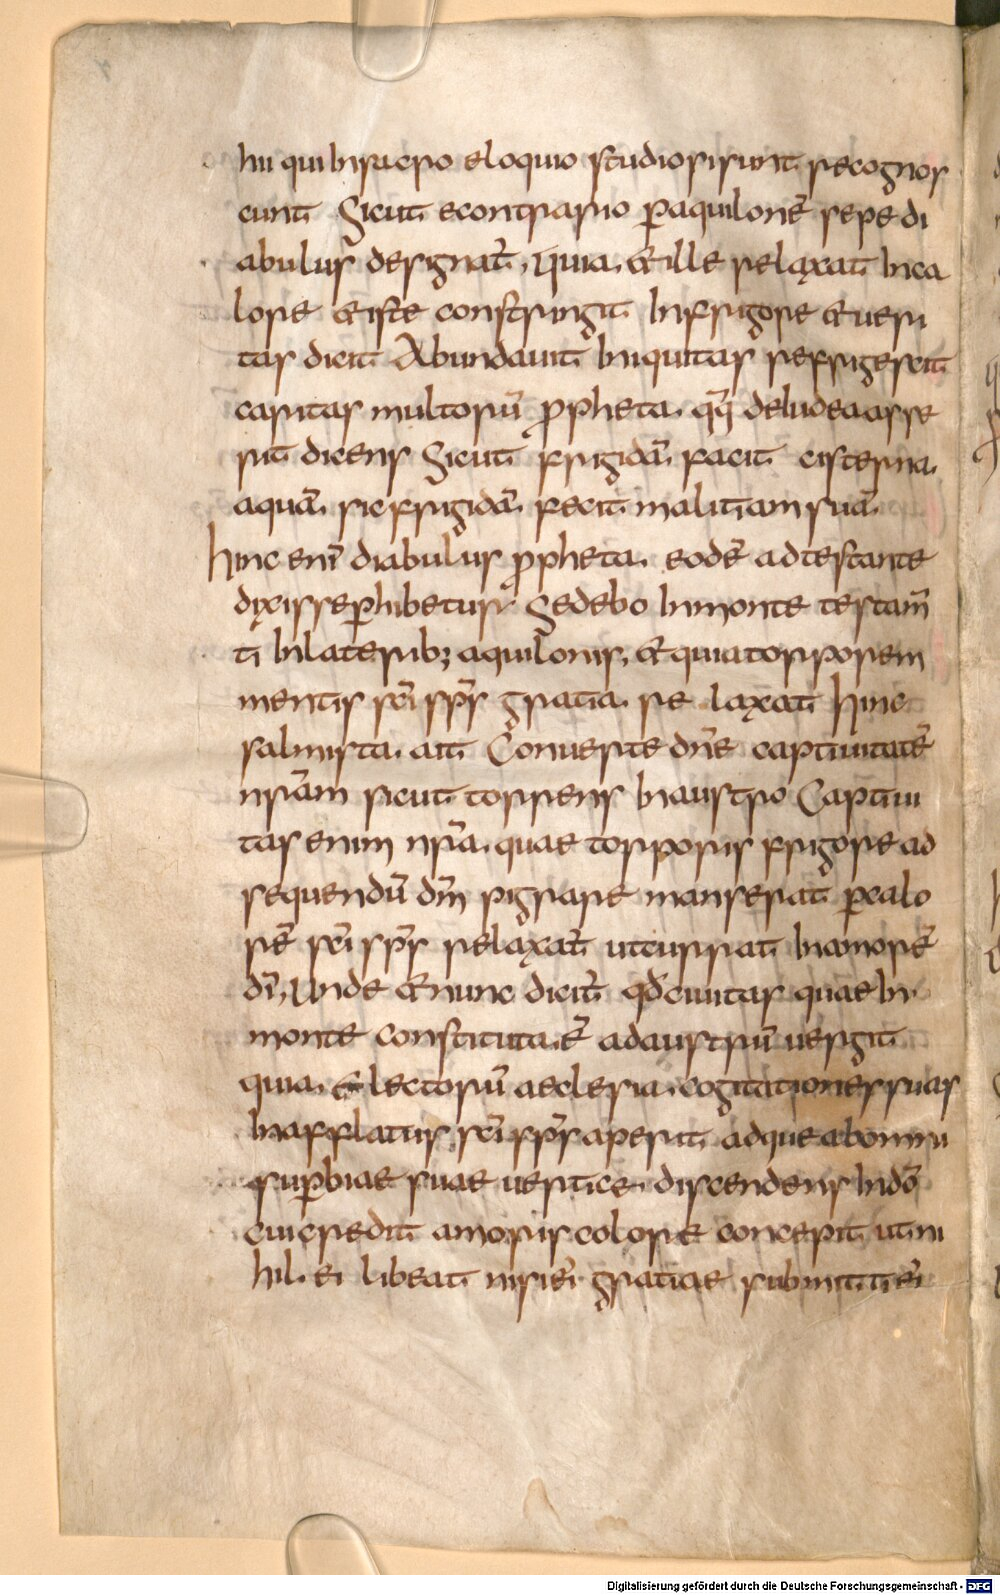 hii qui In sacro eloquio studiosi sunt recognos
cunt Sicut econtrario p̄ aquilonē sepe di
abulus designat̄, Quia & ille relaxat In ca
lore & iste constringit In frigore & ueri
tas dicit Abundauit Iniquitas refrigescit
caritas multorū propheta qq̄ de ludea asse
rit dicens Sicut frigidā facit cisterna
aquā sic frigidā fecit malitiam suā
hinc enī diabulus propheta eodē adtestante
dixisse p̄hibetur Sedebo In monte testam̄
ti In laterib; aquilonis, & quia torporem
mentis sc̄i sp̄s gratia relaxat hinc
salmista ait Conuerte dn̄e captiuitatē
nr̄am sicut torrens In austro Captiui
tas enim nr̄a quae torporis frigore ad
sequendū dm̄ pigrare manserat p̄ calo
rē sc̄i sp̄s relaxat̄ ut currat In amorē
dī, Unde & nunc dicit̄ qđ ciuitas quae In
monte constituta ē ad austrū uergit
quia electorū aeclesia cogitationes suas
In afflatus sc̄i sp̄s aperit adque ab omni
sup̄biae suae uertice discendens In dō
cui credit amoris colore concepit ut ni
hil ei libeat nisi ei gratiae submitti ei